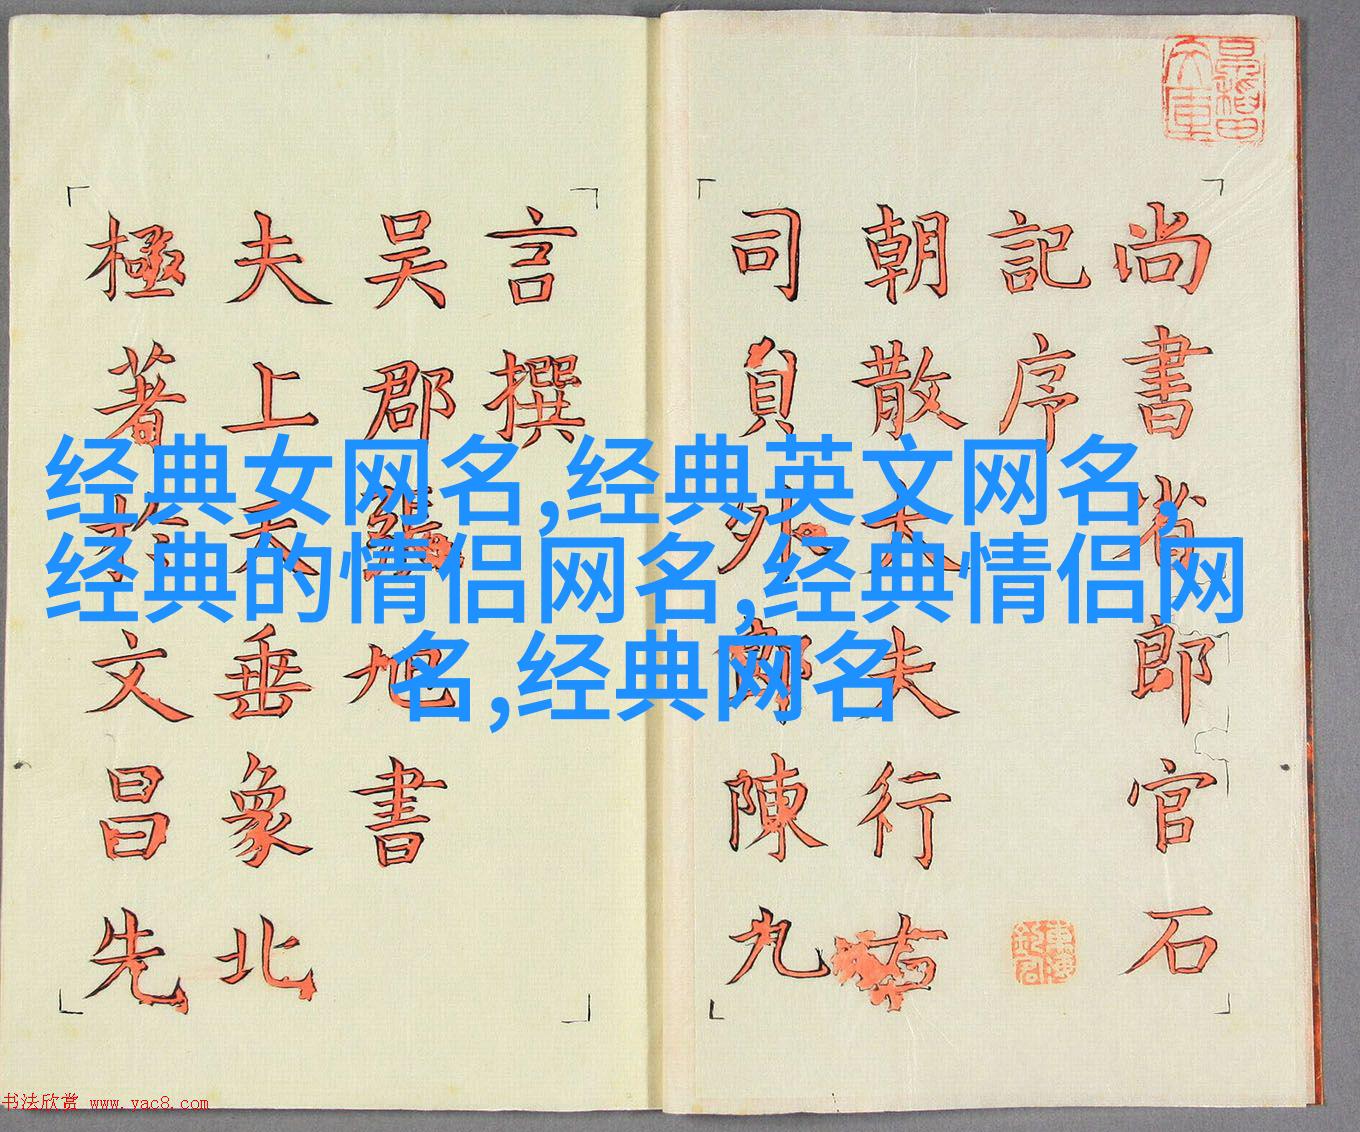 尚書省郎官石
記序
朝散大夫行右
司貟外郎陳九
言撰
吴郡張旭書
夫上天垂象北
極著於文昌先
经典女网名,经典英文网名,
经典的情侣网名,经典情侣网
名,经典网名
书法欣赏 www.yac8.com